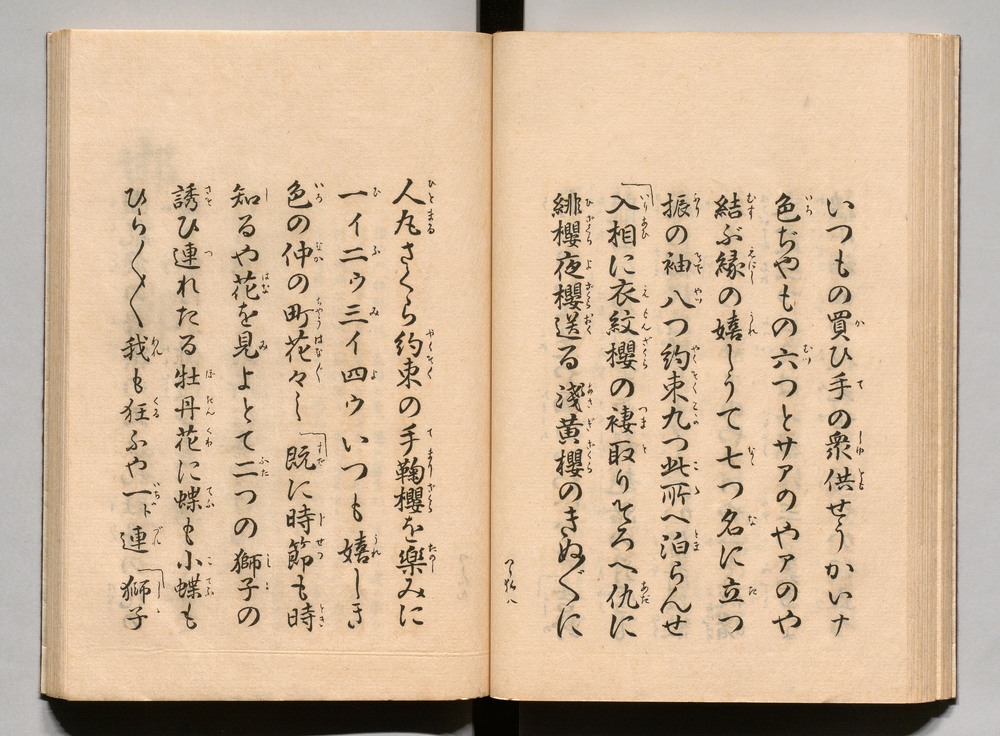 いつもの買ひ手の衆供せうかいナ
色ぢやもの六つとサアのやアのや
結ぶ縁の嬉しうて七つ名に立つ
振の袖八つ約束九つ此所へ泊らんせ
入相に衣紋櫻の褄取りそろへ仇に
緋櫻夜櫻送る淺黄櫻のきぬ〴〵に
人丸さくら約束の手鞠櫻を樂みに
一イ二ウ三イ四ウいつも嬉しき
色の仲の町花々し「既に時節も時
知るや花を見よとて二つの獅子の
誘ひ連れたる牡丹花に蝶も小蝶も
ひら〳〵〳〵我も狂ふや一ト連「獅子